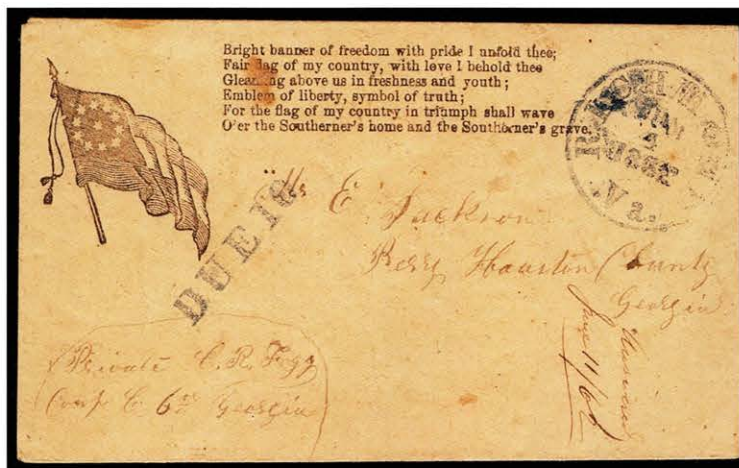 Bright banner of freedom with pride I unfold thee;
Fair flag of my country, with love I behold thee
Gleaming above us in freshness and youth;
Emblem of liberty, symbol of truth;
For the flag of my country in triumph shall wave
O'er the Southerner's home and the Southerner's grave.
RICHMOND
Va.
DUE 10
E Jackson
Perry Houston County
Georgia
Private C. R. Fogg
Comp C. 6th Georgia
June 11/62